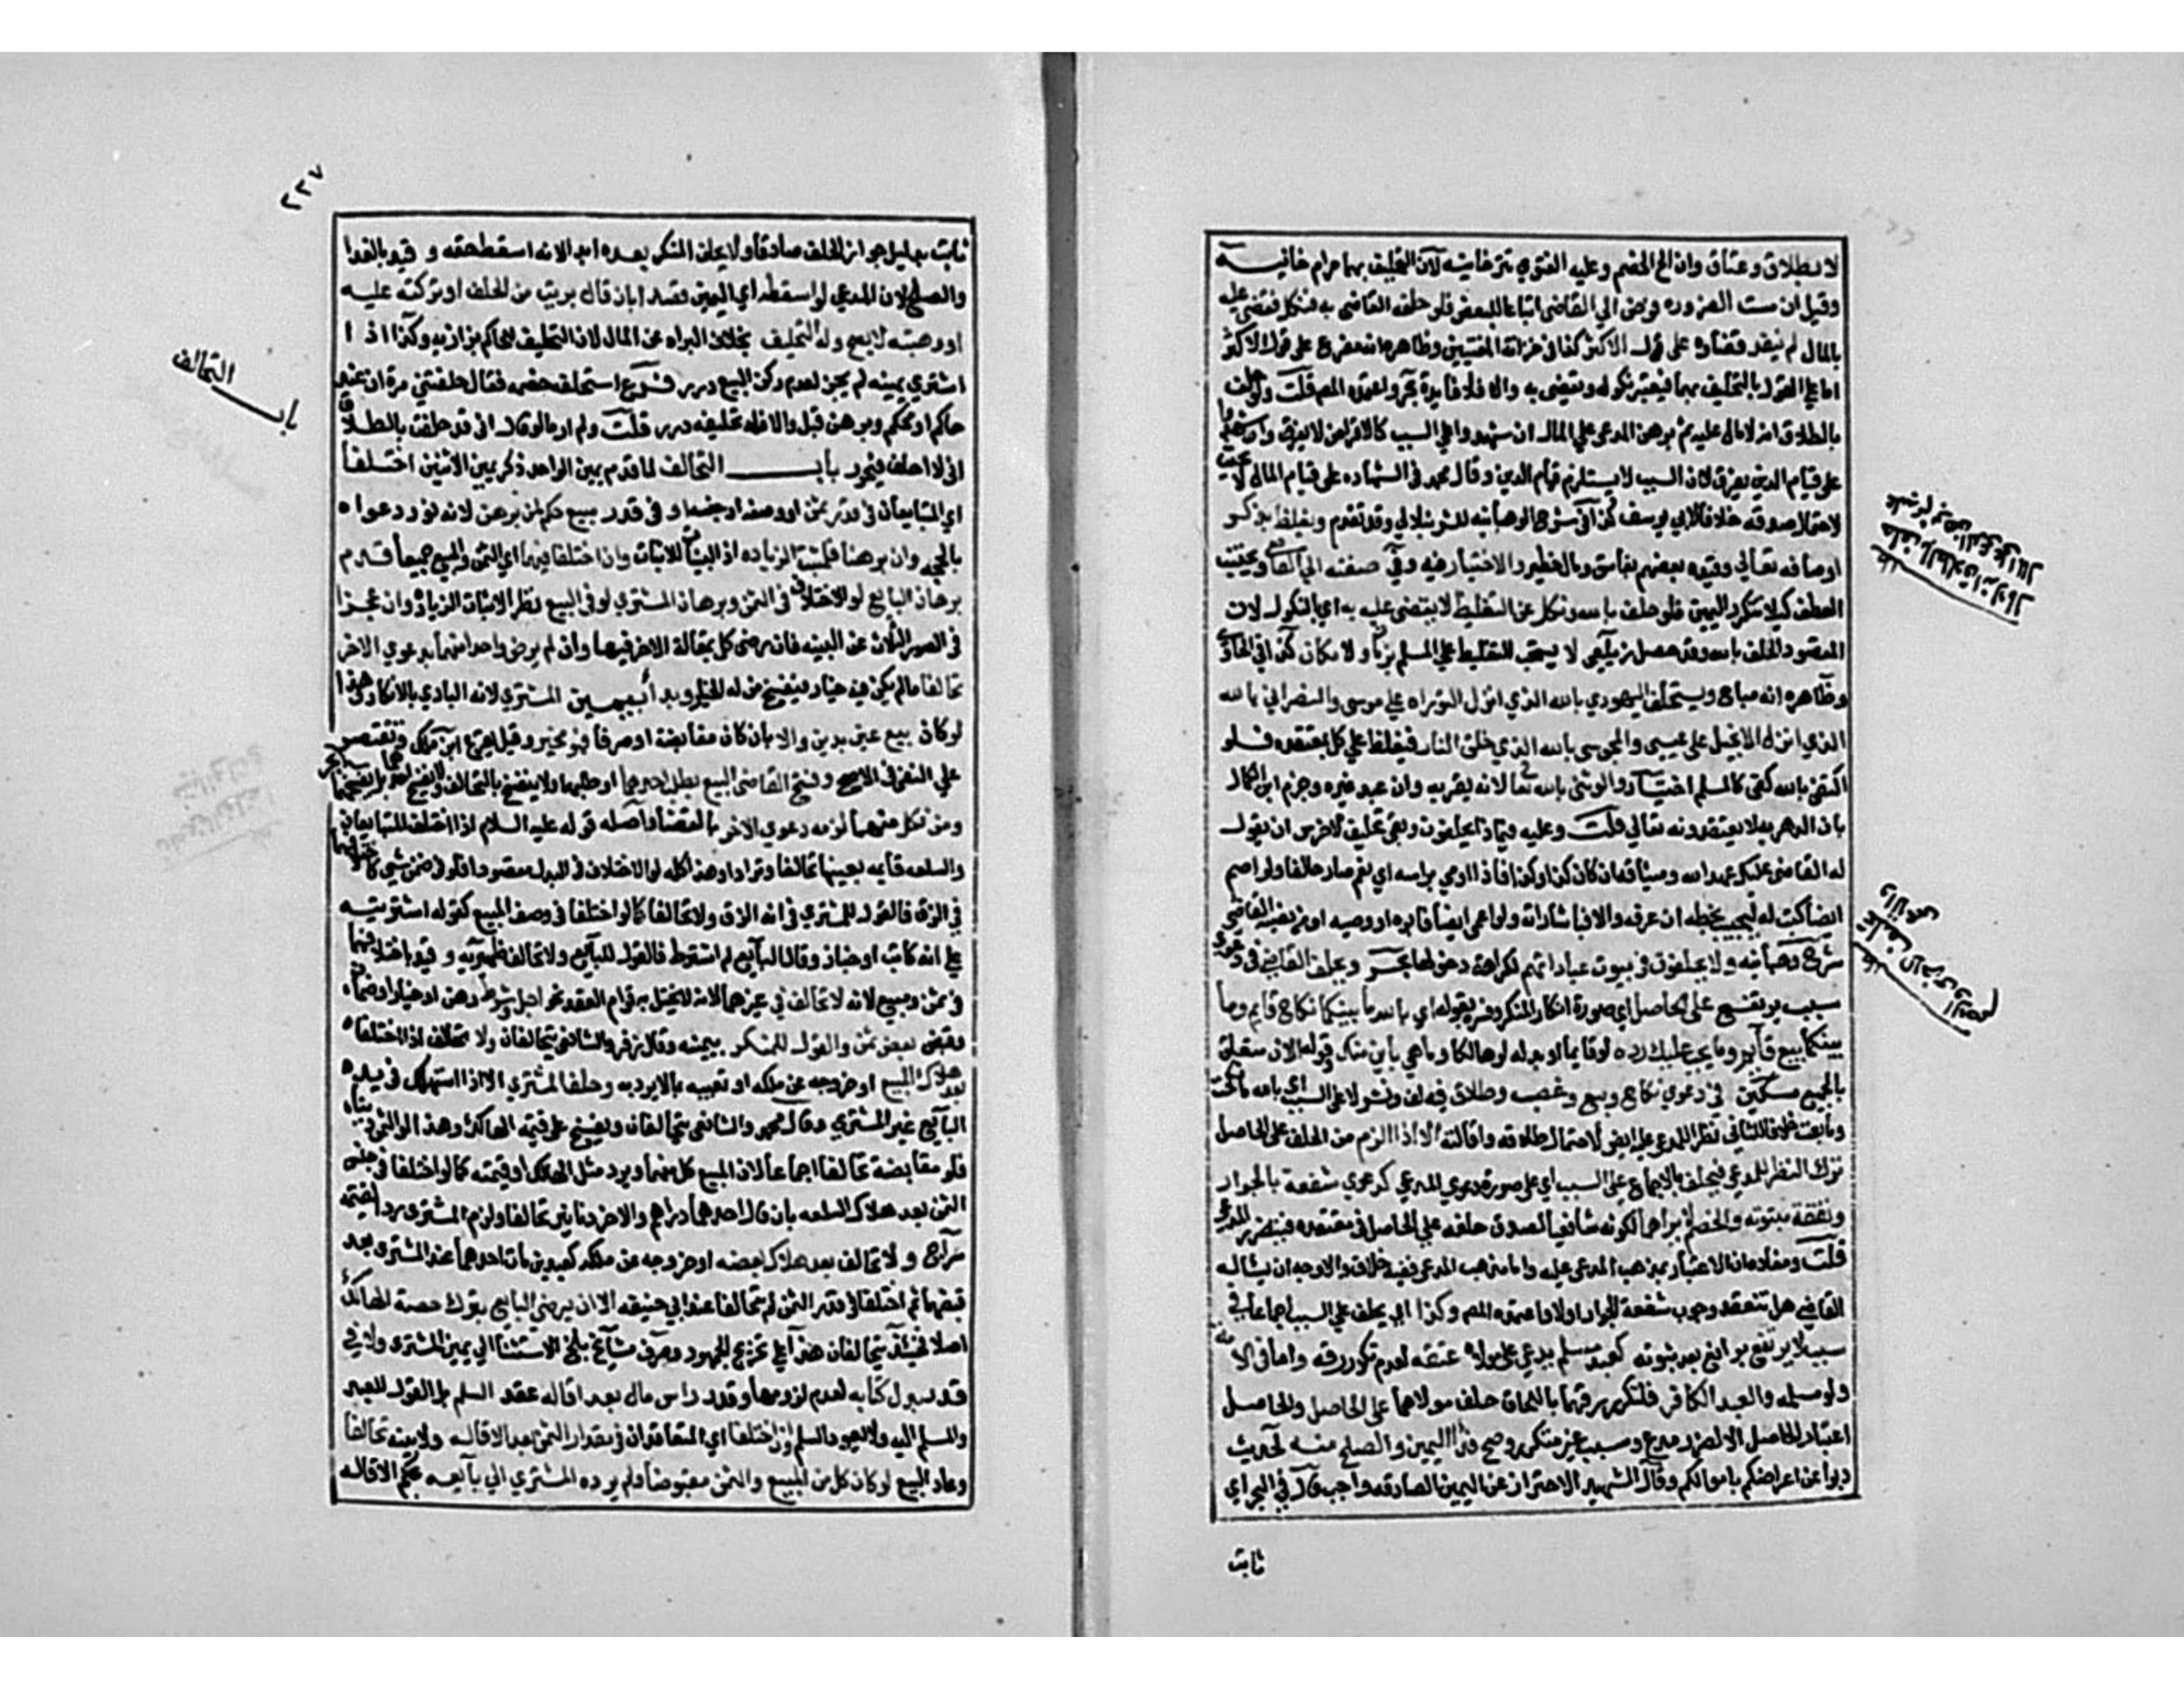 لا بطلاق وعتاق وان الح الخصم وعليه الفتوى تترخانيه لان التحليف بهما حرام خانيه
وقيل ان مست الضروره فوض الي القاضي اتباعا للبعض فلو حلفه القاضي به فنكل فقضي عليه
بالمال لم ينفذ قضاؤه على قول الاكثر كذا في خزانة المفتيين وظاهره انه مفرع على قول الاكثر
اما على القول بالتحليف بهما فيعتبر نكوله ويقضي به والا فلا فايدة بحر واعتمده المص قلت ولو حلف
بالطلاق انه لا مال عليه ثم برهن المدعي على المال ان شهدوا على السبب كالاقراض لا يفرق وان شهدوا
على قيام الدين يفرق لان السبب لا يستلزم قيام الدين وقال محمد في الشهاده على قيام المال لا يحنث
لاحتمال صدقه خلافا لابي يوسف كذا في شرح الوهبانيه للشرنبلالي وقد تقدم ويغلظ بذكر
اوصافه تعالي وقيده بعضهم بفاسق ومال خطير والاختيار فيه وفي صفته الي القاضي ويجتنب
العطف كيلا يتكرر اليمين فلو حلف بالله ونكل عن التغليظ لا يقضي عليه به اي بالنكول لان
المقصود الحلف بالله وقد حصل زيلعي لا يستحب التغليظ على المسلم بزمان ولا مكان كذا في الحاوي
وظاهره انه مباح ويستحلف اليهودي بالله الذي انزل التوراه علي موسى والنصراني بالله
الذي انزل الانجيل على عيسى والمجوسي بالله الذي خلق النار فيغلظ علي كل بمعتقده فلو
اكتفى بالله كفى كالمسلم اختيار والوثني بالله تعالى لانه يقر به وان عبد غيره وجزم ابن الكمال
بان الدهريه لا يعتقدونه تعالي قلت وعليه فبماذا يحلفون وبقي تحليف الاخرس ان يقول
له القاضي عليك عهد الله وميثاقه ان كان كذا وكذا فاذا اومي براسه اي نعم صار حالفا ولو اصم
ايضا كتب له ليجيب بخطه ان عرفه والا فباشارته ولو اعمى ايضا فابوه او وصيه او من نصبه القاضي
شرح وهبانيه ولا يحلفون في بيوت عباداتهم لكراهة دخولها بحر ويحلف القاضي في دعوى
سبب يرتفع على الحاصل اي صورة انكار المنكر وفسره بقوله اي بالله ما بينكما نكاح قايم وما
بينكما بيع قايم وما يجب عليك رده لو قايما او بدله لو هالكا وما هي باين منك وقوله الان متعلق
بالجميع مسكين في دعوى نكاح وبيع وغصب وطلاق فيه لف ونشر لا على السبب اي بالله ما نكحت
وما بعت خلافا للثاني نظرا للمدعي عليه ايضا لاحتمال طلاقه واقالته الا اذا لزم من الحلف على الحاصل
ترك النظر للمدعي فيحلف بالاجماع على السبب اي على صورة دعوى المدعي كدعوى شفعة بالجوار
ونفقة مبتوته والخصم لا يراهما لكونه شافعيا لصدق حلفه على الحاصل في معتقده فيتضرر المدعي
قلت ومفاده ان الاعتبار بمذهب المدعى عليه واما مذهب المدعي ففيه خلاف والاوجه ان يساله
القاضي هل تعتقد وجوب شفعة الجوار اولا واعتمده المص وكذا اي يحلف على السبب اجماعا في
سبب لا يرتفع برافع بعد ثبوته كعبد مسلم يدعي على مولاه عتقه لعدم تكرر رقه واما في الامة
ولو مسلمه والعبد الكافر فلتكرر رقهما باللحاق حلف مولاهما على الحاصل والحاصل
اعتبار الحاصل الا لضرر مدع وسبب غير متكرر وصح فدا اليمين والصلح منه لحديث
ذبوا عن اعراضكم باموالكم وقال الشهيد الاحتراز عن اليمين الصادقه واجب قال في البحر اي
ثابت
حلف بالطلاق انه لا مال
عليه ثم برهن المدعي على المال
٢٢٧
ثابت بدليل جواز الحلف صادقا ولا يحلف المنكر بعده ابدا لانه اسقط حقه و قيد بالفدا
والصلح لان المدعي لو اسقطه اي اليمين قصدا بان قال بريت من الحلف او تركته عليه
او وهبته لا يصح وله التحليف بخلاف البراه عن المال لان التحليف للحاكم بزازيه وكذا اذا
اشترى يمينه لم يجز لعدم ركن البيع درر فرع استحلف خصمه فقال حلفتني مرة ان عند
حاكم او محكم وبرهن قبل والا فله تحليفه درر قلت ولم ار ما لو قال اني قد حلفت بالطلاق
اني لا احلف فيحرر باب التحالف لما قدم يمين الواحد ذكر يمين الاثنين اختلفا
اي المتبايعان في قدر ثمن او وصفه او جنسه او في قدر مبيع حكم لمن برهن لانه نور دعواه
بالحجه وان برهنا فلمثبت الزياده اذ البينات للاثبات وان اختلفا فيهما اي الثمن والمبيع جميعا قدم
برهان البايع لو الاختلاف في الثمن وبرهان المشتري لو في المبيع نظرا لاثبات الزياده وان عجزا
في الصور الثلاث عن البينه فان رضي كل بمقالة الاخر فيها وان لم يرض واحد منهما بدعوي الاخر
تحالفا ما لم يكن فيه خيار فيفسخ من له الخيار وبدا بيمين المشتري لانه البادي بالانكار وهذا
لو كان بيع عين بدين والا بان كان مقايضة او صرفا فهو مخير وقيل يقرع ابن ملك ويقتصر
علي النفي في الاصح وفسخ القاضي البيع بطلب احدهما او طلبهما ولا ينفسخ بالتحالف ولا بفسخ احدهما بل بفسخهما بحر
ومن نكل منهما لزمه دعوي الاخر بالقضا واصله قوله عليه السلام اذا اختلف المتبايعان
والسلعه قايمه بعينها تحالفا وترادا وهذا كله لو الاختلاف في البدل مقصودا فلو في ضمن شي كاختلافهما
في الزق فالقول للمشتري في انه الزق ولا تحالف كما لو اختلفا في وصف المبيع كقوله اشتريته
علي انه كاتب او خباز وقال البايع لم اشترط فالقول للبايع ولا تحالف ظهيريه و قيد باختلافهما
في ثمن ومبيع لانه لا تحالف في غيرهما لانه لا يختل به قوام العقد نحو اجل وشرط رهن او خيار او ضمان
وقبض بعض ثمن والقول للمنكر بيمينه وقال زفر والشافعي يتحالفان ولا تحالف اذا اختلفا
بعد هلاك المبيع او خروجه عن ملكه او تعيبه بما لا يرد به وحلف المشتري الا اذا استهلك في يد
البايع غير المشتري وقال محمد والشافعي يتحالفان ويفسخ على قيمة الهالك وهذا لو الثمن دينا
فلو مقايضة تحالفا اجماعا لان المبيع كل منهما ويرد مثل الهالك او قيمته كما لو اختلفا في جنس
الثمن بعد هلاك السلعه بان قال احدهما دراهم والاخر دنانير تحالفا ولزم المشتري رد القيمة
سراج و لا تحالف بعد هلاك بعضه او خروجه عن ملكه كعبدين مات احدهما عند المشتري بعد
قبضهما ثم اختلفا في قدر الثمن لم يتحالفا عند ابي حنيفه الا ان يرضى البايع بترك حصة الهالك
اصلا فحينئذ يتحالفان هذا على تخريج الجمهور وصرف مشايخ بلخ الاستثنا الي يمين المشتري ولا في
قدر بدل كتابه لعدم لزومها وقدر راس مال بعد اقاله عقد السلم بل القول للعبد
والمسلم اليه ولا يعود السلم وان اختلفا اي المتعاقدان في مقدار الثمن بعد الاقاله ولا بينه تحالفا
وعاد البيع لو كان كل من المبيع والثمن مقبوضا ولم يرده المشتري الي بايعه بحكم الاقاله
باب التحالف